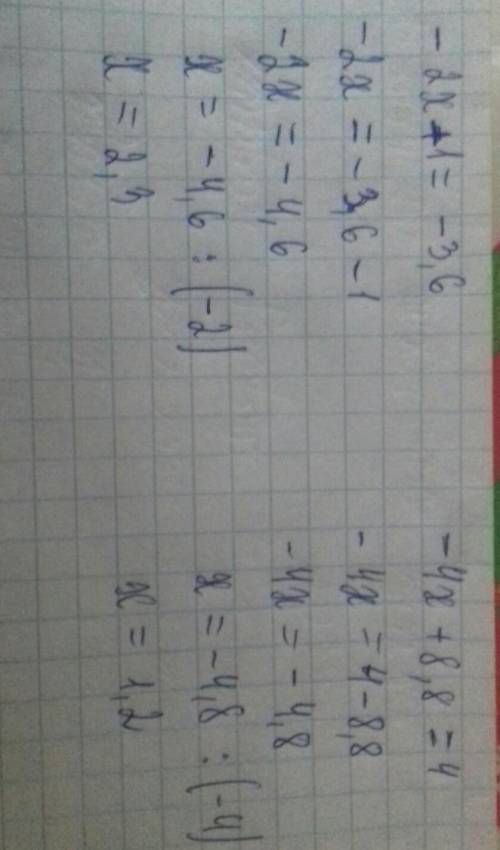 -2x+1=-3,6
-2x=-3,6-1
-2x=-4,6
x=-4,6:(-2)
x=2,3
-4x+8,8=4
-4x=4-8,8
-4x=-4,8
x=-4,8:(-4)
x=1,2